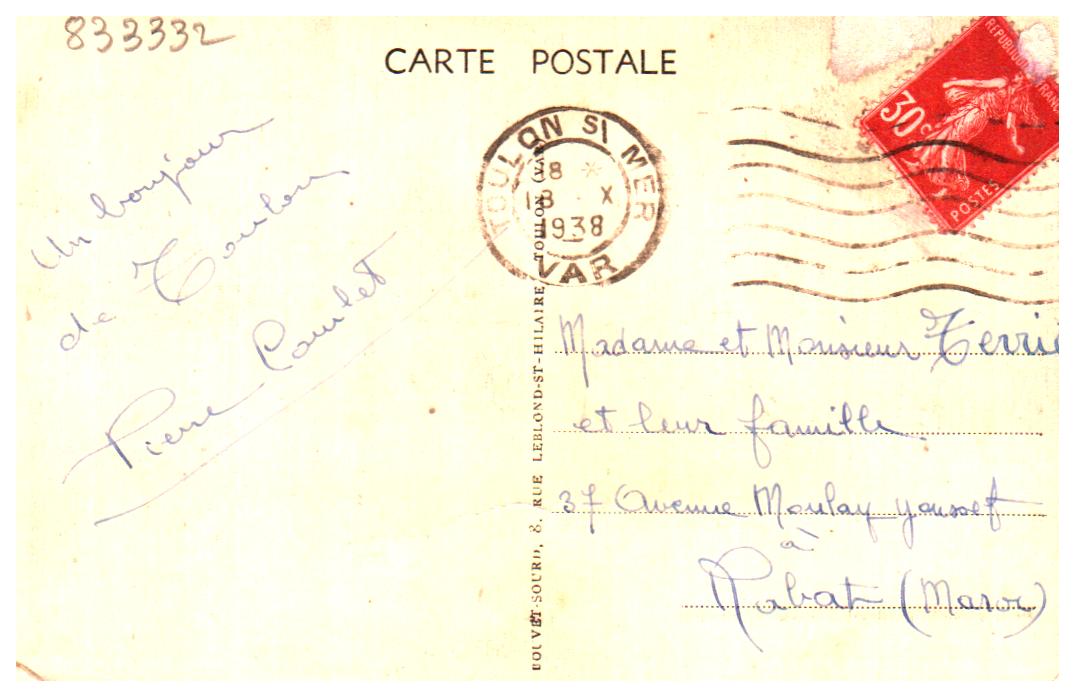 833332
CARTE POSTALE
REPUBLIQUE FRANC
30c
POSTES
TOULON SI MER
18 *
13 · X
1938
VAR
Un bonjour
de Toulon
Pierre
BOUVET-SOURD, 8, RUE LEBLOND-ST-HILAIRE TOULON (VAR)
Madame et Monsieur Terrie
et leur famille.
37 Avenue Moulay youssef
à
Rabat (Maroc)